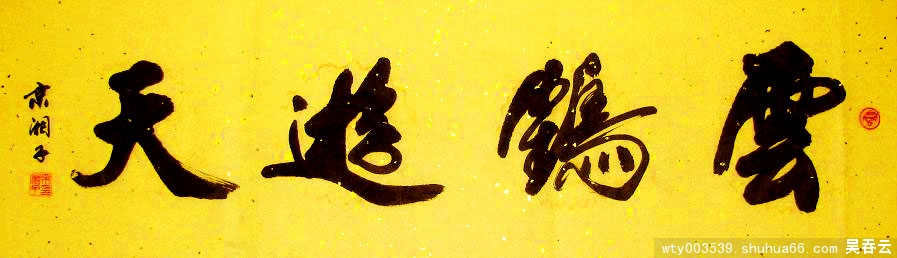 雲鶴遊天
京湘子
wty003539.shuhua66.com 吴吞云